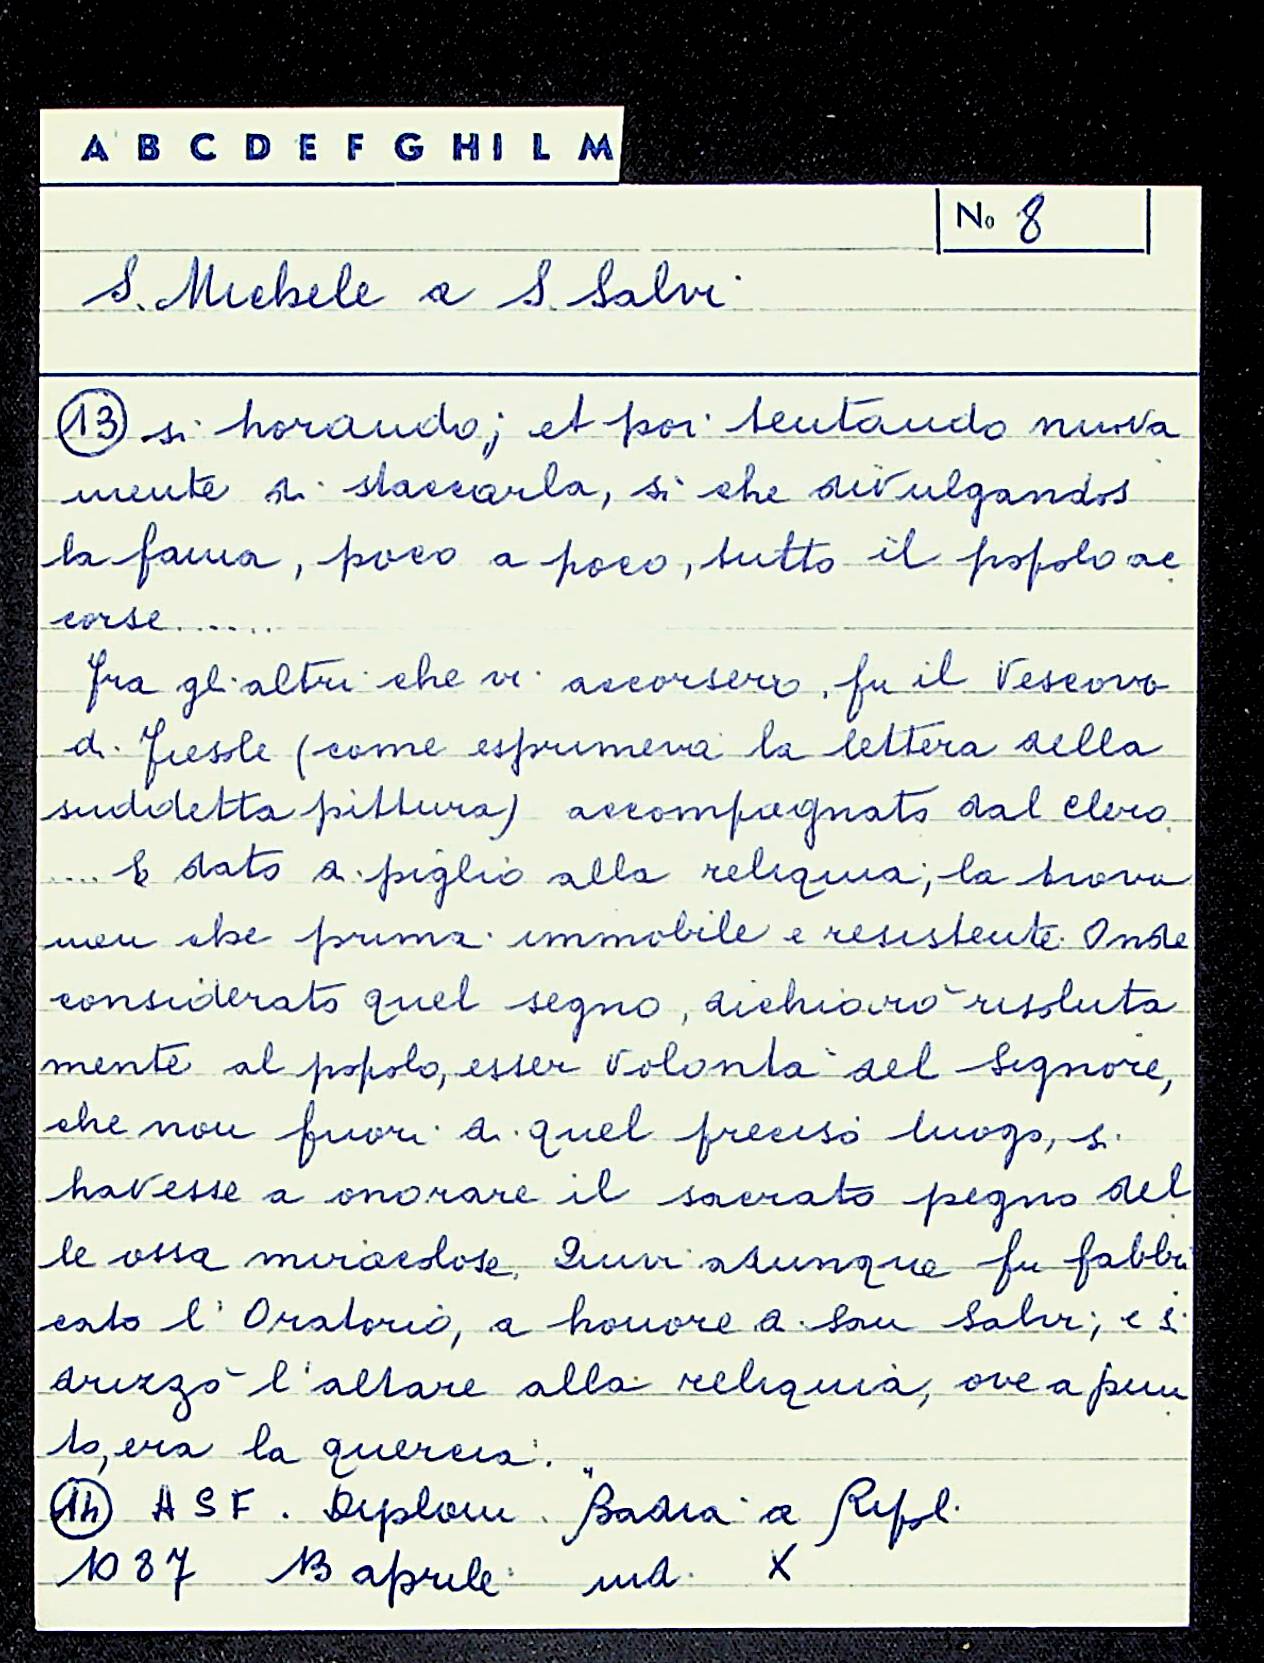 A B C D E F G H I L M
No 8
S. Michele a S. Salvi
(13) si horando; et poi tentando nuova
mente di staccarla, si che divulgandosi
la fama, poco a poco, tutto il popolo ac
corse.......
Fra gli altri che vi accorsero, fu il Vescovo
di Fiesole (come esprimeva la lettera della
suddetta pittura) accompagnato dal clero.
.... E dato di piglio alla reliquia, la trova
non che prima immobile e resistente. Onde
considerato quel segno, dichiarò risoluta
mente al popolo, esser volontà del Signore,
che non fuori di quel preciso luogo, si
havesse a onorare il sacrato pegno del
le ossa miracolose. Quivi adunque fu fabbri
cato l'Oratorio, a honore di san Salvi; e si
drizzò l'altare alla reliquia, ove apun
to, era la quercia.
(14) ASF. Diplom. "Badia a Ripol.
1087 13 aprile ind. X